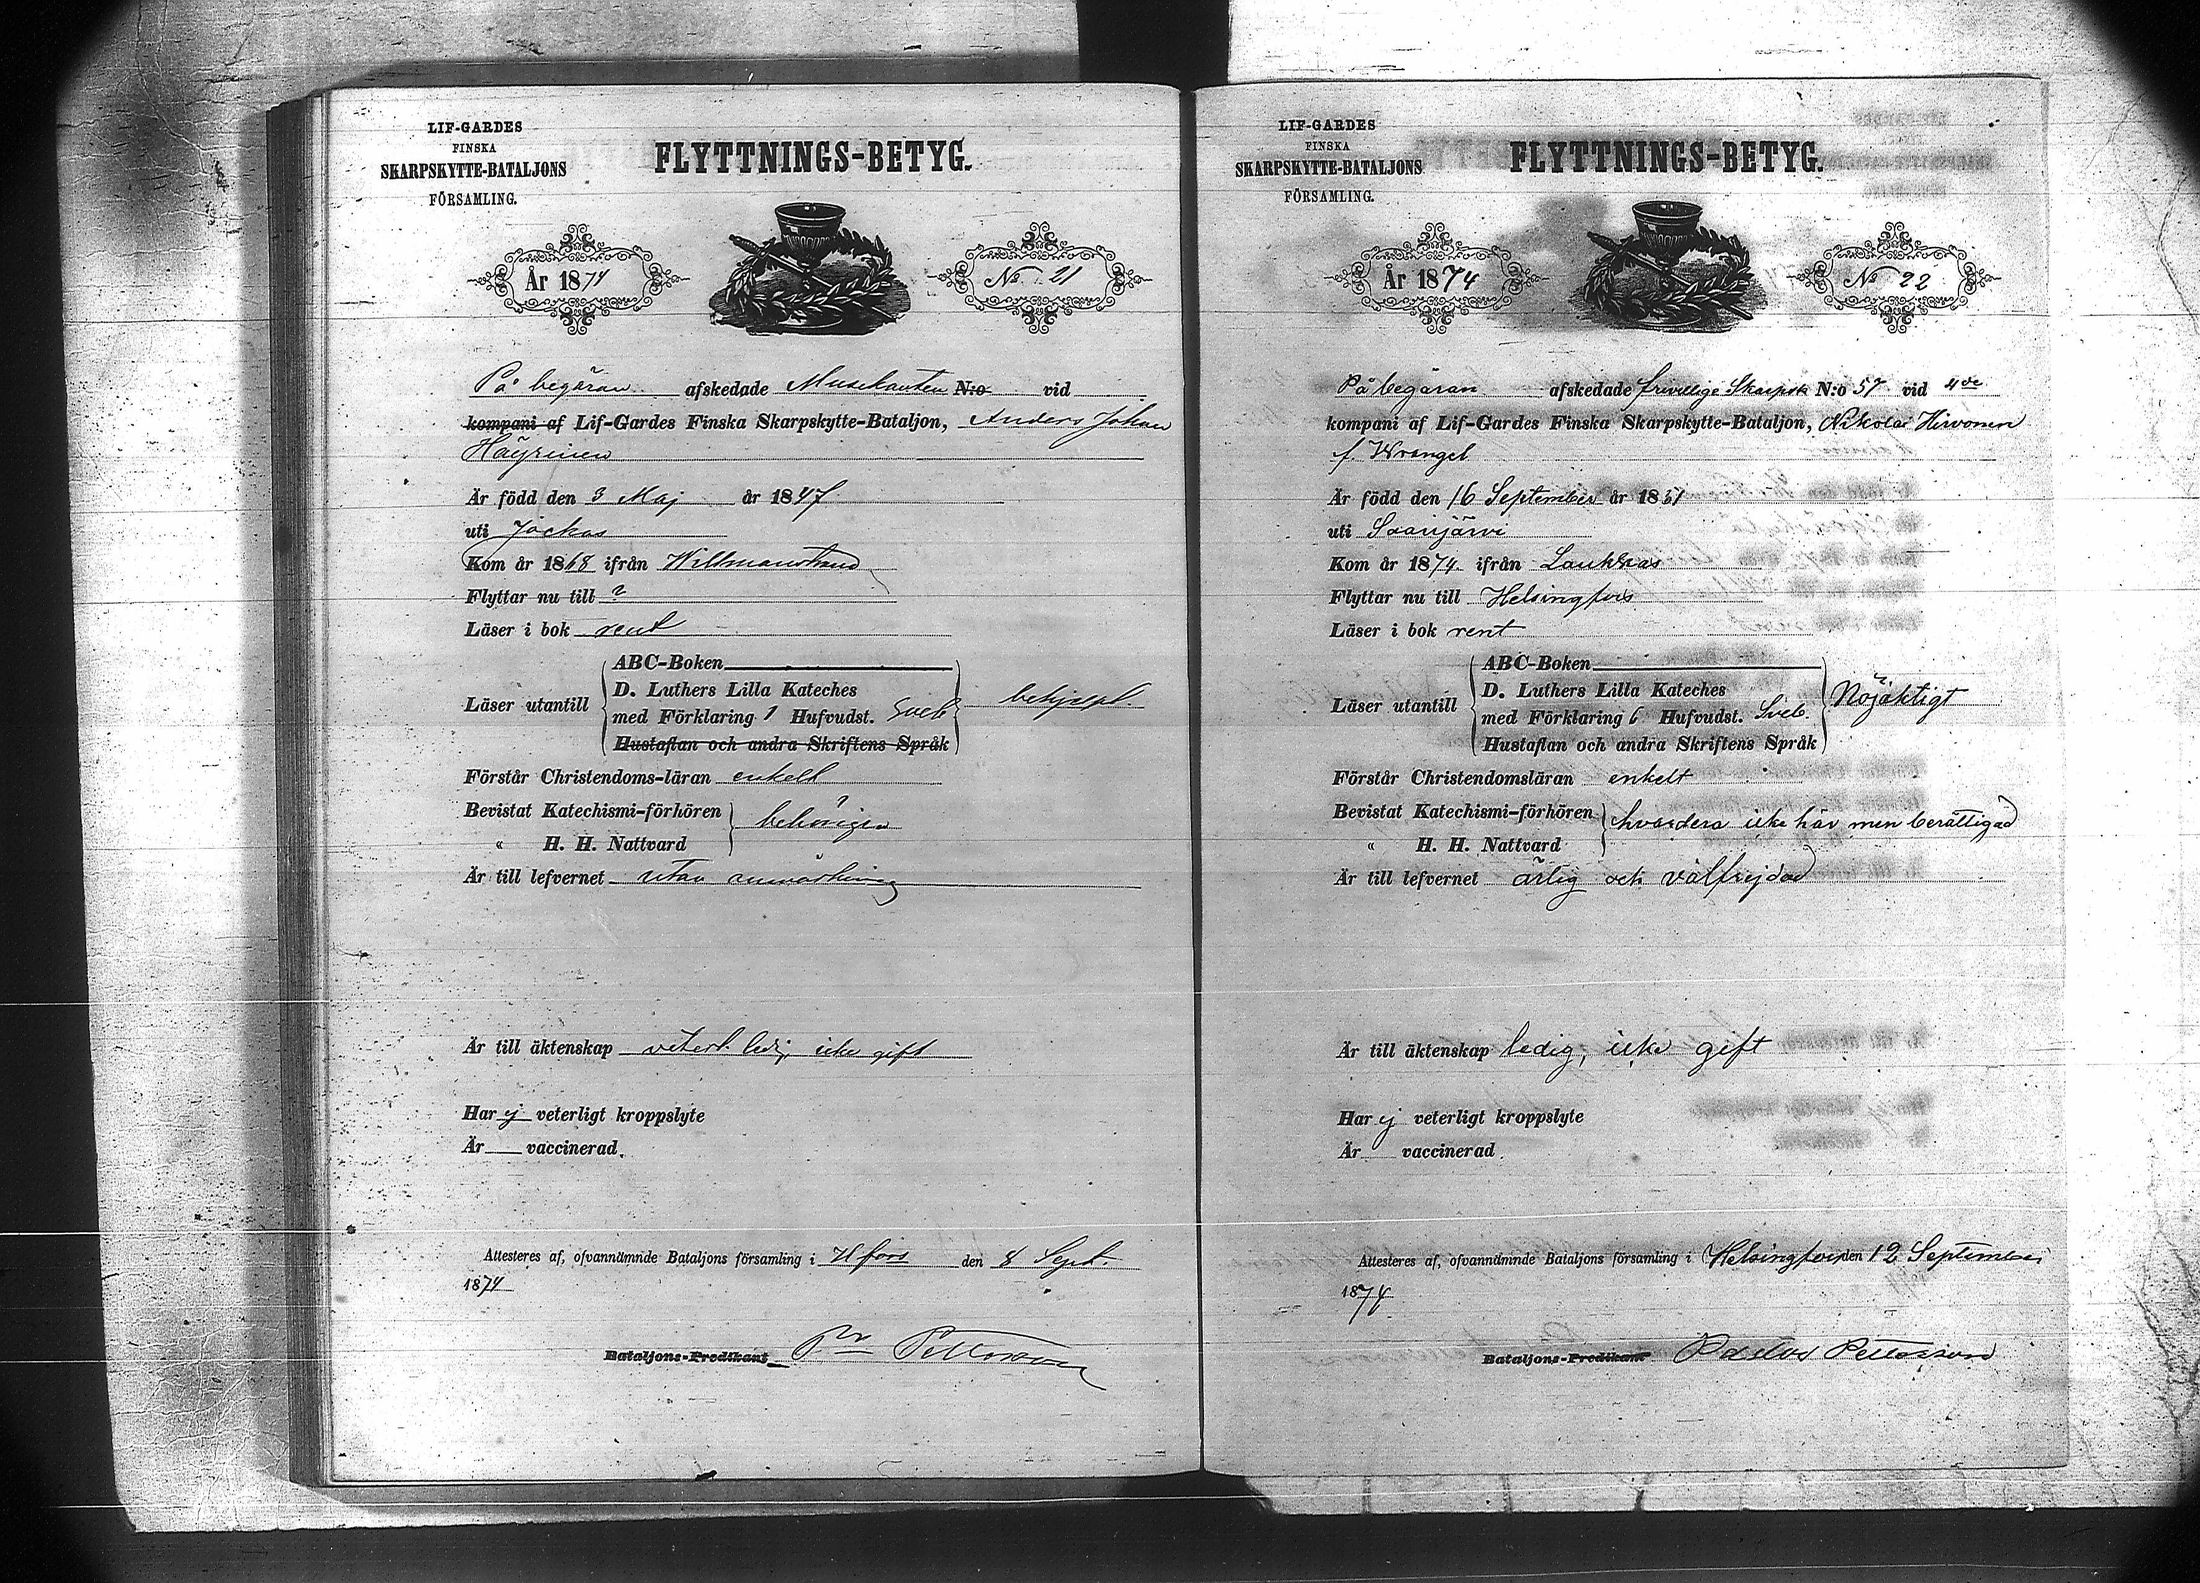 LIF-GARDES
FINSKA
SKARPSKYTTE-BATALJONS
FÖRSAMLING.
FLYTTNINGS-BETYG.
År 1874
No 21
På begäran afskedade Musikanten N:o vid
kompani af Lif-Gardes Finska Skarpskytte-Bataljon, Anders Johan
Häyrinen
Är född den 3 Maj år 1847
uti Jockas
Kom år 1868 ifrån Willmanstrand
Flyttar nu till ?
Läser i bok rent
ABC-Boken
D. Luthers Lilla Kateches
Läser utantill
med Förklaring 1 Hufvudst. Sveb
behjelpl.
Hustaflan och andra Skriftens Språk
Förstår Christendoms-läran enkelt
Bevistat Katechismi-förhören
behörigen
" H. H. Nattvard
Är till lefvernet utan anmärkning
Är till äktenskap veterl. ledig, icke gift
Har ej veterligt kroppslyte
Är vaccinerad.
Attesteres af, ofvannämnde Bataljons församling i H.fors den 8 Sept.
1874
Bataljons-Predikant Petterson
LIF-GARDES
FINSKA
SKARPSKYTTE-BATALJONS
FÖRSAMLING.
FLYTTNINGS-BETYG.
År 1874
No 22
På begäran afskedade frivillige Skarpsk N:o 57 vid 4de
kompani af Lif-Gardes Finska Skarpskytte-Bataljon, Nikolai Hirvonen
f. Wrangel
Är född den 16 September år 1851
uti Saarijärvi
Kom år 1874 ifrån Laukkas
Flyttar nu till Helsingfors
Läser i bok rent
ABC-Boken
D. Luthers Lilla Kateches
Läser utantill
med Förklaring 6 Hufvudst. Sveb.
Nöjaktigt
Hustaflan och andra Skriftens Språk
Förstår Christendomsläran enkelt
Bevistat Katechismi-förhören
hvardera icke här men berättigad
" H. H. Nattvard
Är till lefvernet ärlig och välfrejdad
Är till äktenskap ledig, icke gift
Har ej veterligt kroppslyte
Är vaccinerad.
Attesteres af, ofvannämnde Bataljons församling i Helsingfors den 12 September
1874
Bataljons-Predikant Pastor Petterson